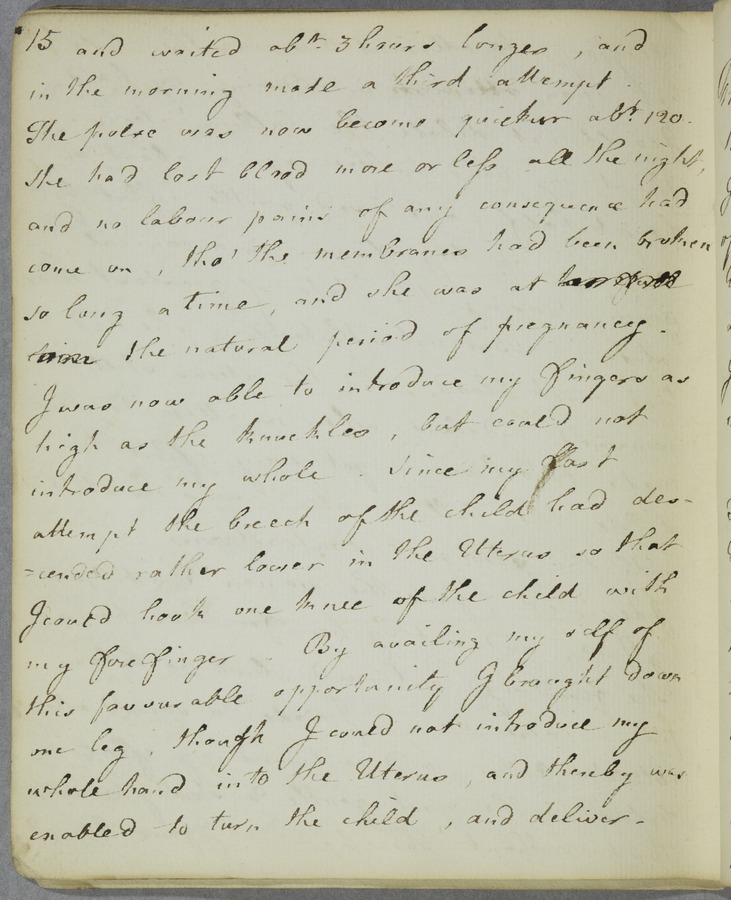 15 and waited abt. 3 hours longer, and
in the morning made a third attempt.
The pulse was now become quicker abt. 120.
She had lost blood more or less all the night,
and no labour pains of any consequence had
come on, tho' the membranes had been broken
so long a time, and she was at
the natural period of pregnancy.
I was now able to introduce my fingers as
high as the knuckles, but could not
introduce my whole. Since my last
attempt the breech of the child had des-
=cended rather lower in the Uterus so that
I could hook one knee of the child with
my fore finger. By availing my self of
this favourable opportunity I brought down
one leg, though I could not introduce my
whole hand into the Uterus, and thereby was
enabled to turn the child, and deliver.